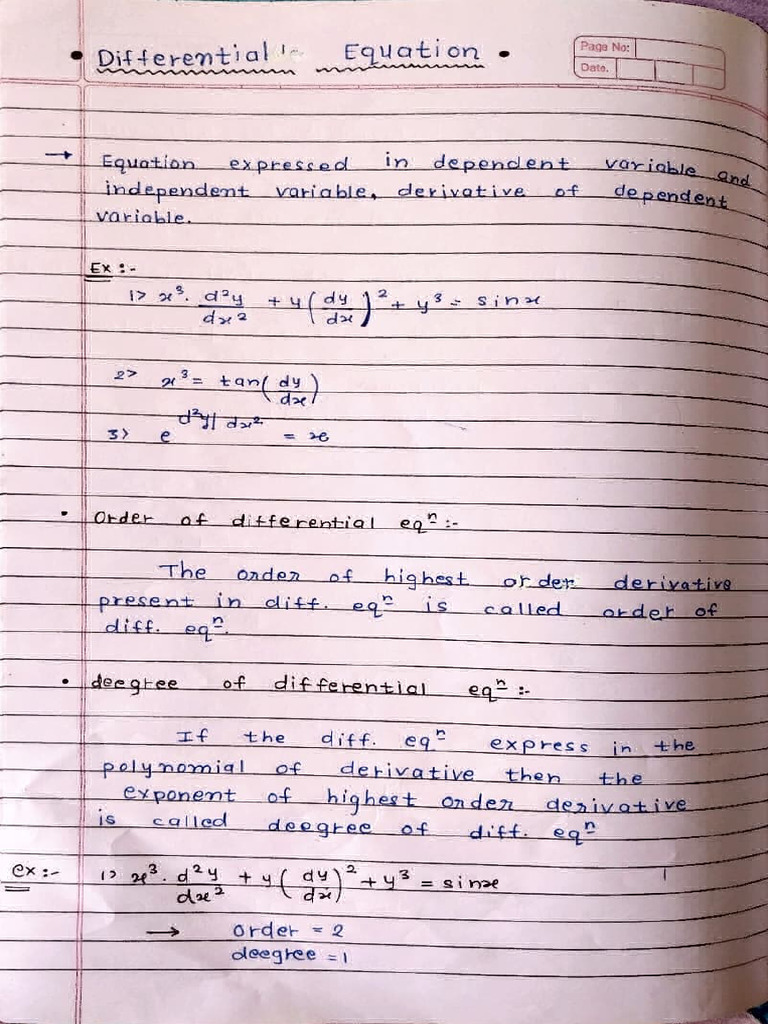 • Differential Equation •
Page No:
Date.
→ Equation expressed in dependent variable and
independent variable, derivative of dependent
variable.
Ex :-
1> x³. d²y/dx² + y(dy/dx)² + y³ = sinx
2> x³ = tan(dy/dx)
3> e^(d²y/dx²) = x
• Order of differential eqⁿ :-
The order of highest order derivative
present in diff. eqⁿ is called order of
diff. eqⁿ.
• deegree of differential eqⁿ :-
If the diff. eqⁿ express in the
polynomial of derivative then the
exponent of highest order derivative
is called deegree of diff. eqⁿ
ex :- 1> x³. d²y/dx² + y(dy/dx)² + y³ = sinx
→ order = 2
deegree = 1